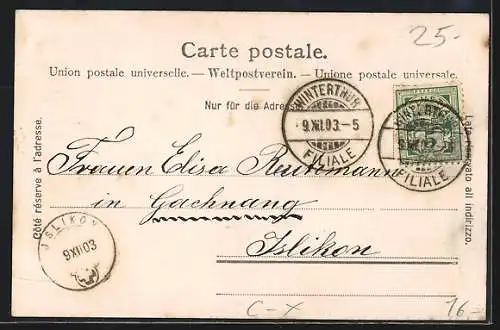 25.-
Carte postale.
Union postale universelle. — Weltpostverein. — Unione postale universale.
Nur für die Adresse
WINTERTHUR
9.XII.03.-5
FILIALE
WINTERTHUR
FILIALE
Côté réservé à l'adresse.
Lato riservato all indirizzo.
Frauen Elisa
in Gachnang
Islikon
ISLIKON
9XII03
C-X
16.-